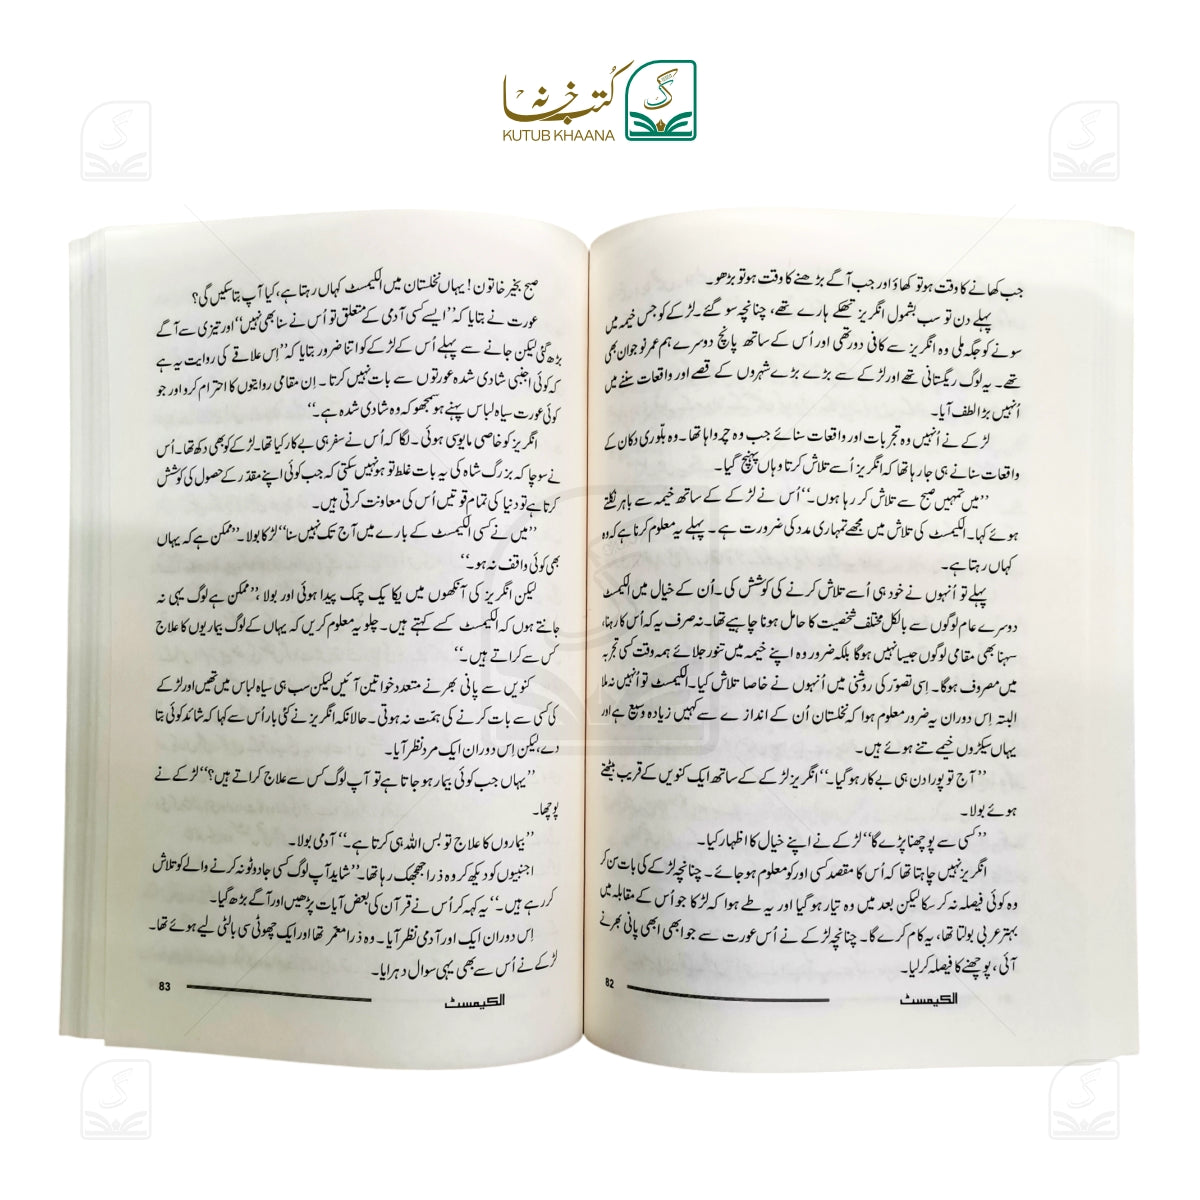 کتب خانہ
KUTUB KHAANA
جب کھانے کا وقت ہو تو کھاؤ اور جب آگے بڑھنے کا وقت ہو تو بڑھو۔
پہلے دن تو سب بشمول انگریز تھکے ہارے تھے، چنانچہ سو گئے۔ لڑکے کو جس خیمہ میں
سونے کو جگہ ملی وہ انگریز سے کافی دور تھی اور اُس کے ساتھ پانچ دوسرے ہم عمر نوجوان بھی
تھے۔ یہ لوگ ریگستانی تھے اور لڑکے سے بڑے بڑے شہروں کے قصے اور واقعات سننے میں
اُنہیں بڑا لطف آیا۔
لڑکے نے اُنہیں وہ تجربات اور واقعات سنائے جب وہ چرواہا تھا۔ وہ بلّوری دکان کے
واقعات سنانے ہی جا رہا تھا کہ انگریز اُسے تلاش کرتا وہاں پہنچ گیا۔
’’میں تمہیں صبح سے تلاش کر رہا ہوں۔‘‘ اُس نے لڑکے کے ساتھ خیمہ سے باہر نکلتے
ہوئے کہا۔ الکیمسٹ کی تلاش میں مجھے تمہاری مدد کی ضرورت ہے۔ پہلے یہ معلوم کرنا ہے کہ وہ
کہاں رہتا ہے۔
پہلے تو اُنہوں نے خود ہی اُسے تلاش کرنے کی کوشش کی۔ اُن کے خیال میں الکیمسٹ
دوسرے عام لوگوں سے بالکل مختلف شخصیت کا حامل ہونا چاہیے تھا۔ نہ صرف یہ کہ اُس کا رہنا،
سہنا بھی مقامی لوگوں جیسا نہیں ہوگا بلکہ ضرور وہ اپنے خیمہ میں تنور جلائے ہمہ وقت کسی تجربہ
میں مصروف ہوگا۔ اِسی تصوّر کی روشنی میں اُنہوں نے خاصا تلاش کیا۔ الکیمسٹ تو اُنہیں نہ ملا
البتہ اِس دوران یہ ضرور معلوم ہوا کہ نخلستان اُن کے اندازے سے کہیں زیادہ وسیع ہے اور
یہاں سیکڑوں خیمے تنے ہوئے ہیں۔
’’آج تو پورا دن ہی بے کار ہو گیا۔‘‘ انگریز لڑکے کے ساتھ ایک کنویں کے قریب بیٹھتے
ہوئے بولا۔
’’کسی سے پوچھنا پڑے گا‘‘ لڑکے نے اپنے خیال کا اظہار کیا۔
انگریز نہیں چاہتا تھا کہ اُس کا مقصد کسی اور کو معلوم ہو جائے۔ چنانچہ لڑکے کی بات سن کر
وہ کوئی فیصلہ نہ کر سکا لیکن بعد میں وہ تیار ہو گیا اور یہ طے ہوا کہ لڑکا جو اُس کے مقابلہ میں
بہتر عربی بولتا تھا، یہ کام کرے گا۔ چنانچہ لڑکے نے اُس عورت سے جو ابھی ابھی پانی بھرنے
آئی، پوچھنے کا فیصلہ کر لیا۔
الکیمسٹ 82
صبح بخیر خاتون! یہاں نخلستان میں الکیمسٹ کہاں رہتا ہے، کیا آپ بتا سکیں گی؟
عورت نے بتایا کہ ’’ایسے کسی آدمی کے متعلق تو اُس نے سنا بھی نہیں‘‘ اور تیزی سے آگے
بڑھ گئی لیکن جانے سے پہلے اُس کے لڑکے کو اتنا ضرور بتایا کہ ’’اِس علاقے کی روایت یہ ہے
کہ کوئی اجنبی شادی شدہ عورتوں سے بات نہیں کرتا۔ اِن مقامی روایتوں کا احترام کرو اور جو
کوئی عورت سیاہ لباس پہنے ہو سمجھو کہ وہ شادی شدہ ہے۔‘‘
انگریز کو خاصی مایوسی ہوئی۔ لگا کہ اُس نے سفر ہی بے کار کیا تھا۔ لڑکے کو بھی دکھ تھا۔ اُس
نے سوچا کہ بزرگ شاہ کی یہ بات غلط تو ہو نہیں سکتی کہ جب کوئی اپنے مقدّر کے حصول کی کوشش
کرتا ہے تو دنیا کی تمام قوتیں اُس کی معاونت کرتی ہیں۔
’’میں نے کسی الکیمسٹ کے بارے میں آج تک نہیں سنا‘‘ لڑکا بولا۔ ’’ممکن ہے کہ یہاں
بھی کوئی واقف نہ ہو۔‘‘
لیکن انگریز کی آنکھوں میں یکایک چمک پیدا ہوئی اور بولا، ’’ممکن ہے لوگ یہی نہ
جانتے ہوں کہ الکیمسٹ کسے کہتے ہیں۔ چلو یہ معلوم کریں کہ یہاں کے لوگ بیماریوں کا علاج
کس سے کراتے ہیں۔‘‘
کنویں سے پانی بھرنے متعدد خواتین آئیں لیکن سب ہی سیاہ لباس میں تھیں اور لڑکے
کی کسی سے بات کرنے کی ہمّت نہ ہوتی۔ حالانکہ انگریز نے کئی بار اُس سے کہا کہ شائد کوئی بتا
دے، لیکن اِس دوران ایک مرد نظر آیا۔
’’یہاں جب کوئی بیمار ہو جاتا ہے تو آپ لوگ کس سے علاج کراتے ہیں؟‘‘ لڑکے نے
پوچھا۔
’’بیماروں کا علاج تو بس اللہ ہی کرتا ہے۔‘‘ آدمی بولا۔
اجنبیوں کو دیکھ کر وہ ذرا جھجک رہا تھا۔ ’’شاید آپ لوگ کسی جادو ٹونہ کرنے والے کو تلاش
کر رہے ہیں۔‘‘ یہ کہہ کر اُس نے قرآن کی بعض آیات پڑھیں اور آگے بڑھ گیا۔
اِس دوران ایک اور آدمی نظر آیا۔ وہ ذرا معمّر تھا اور ایک چھوٹی سی بالٹی لیے ہوئے تھا۔
لڑکے نے اُس سے بھی یہی سوال دہرایا۔
الکیمسٹ 83